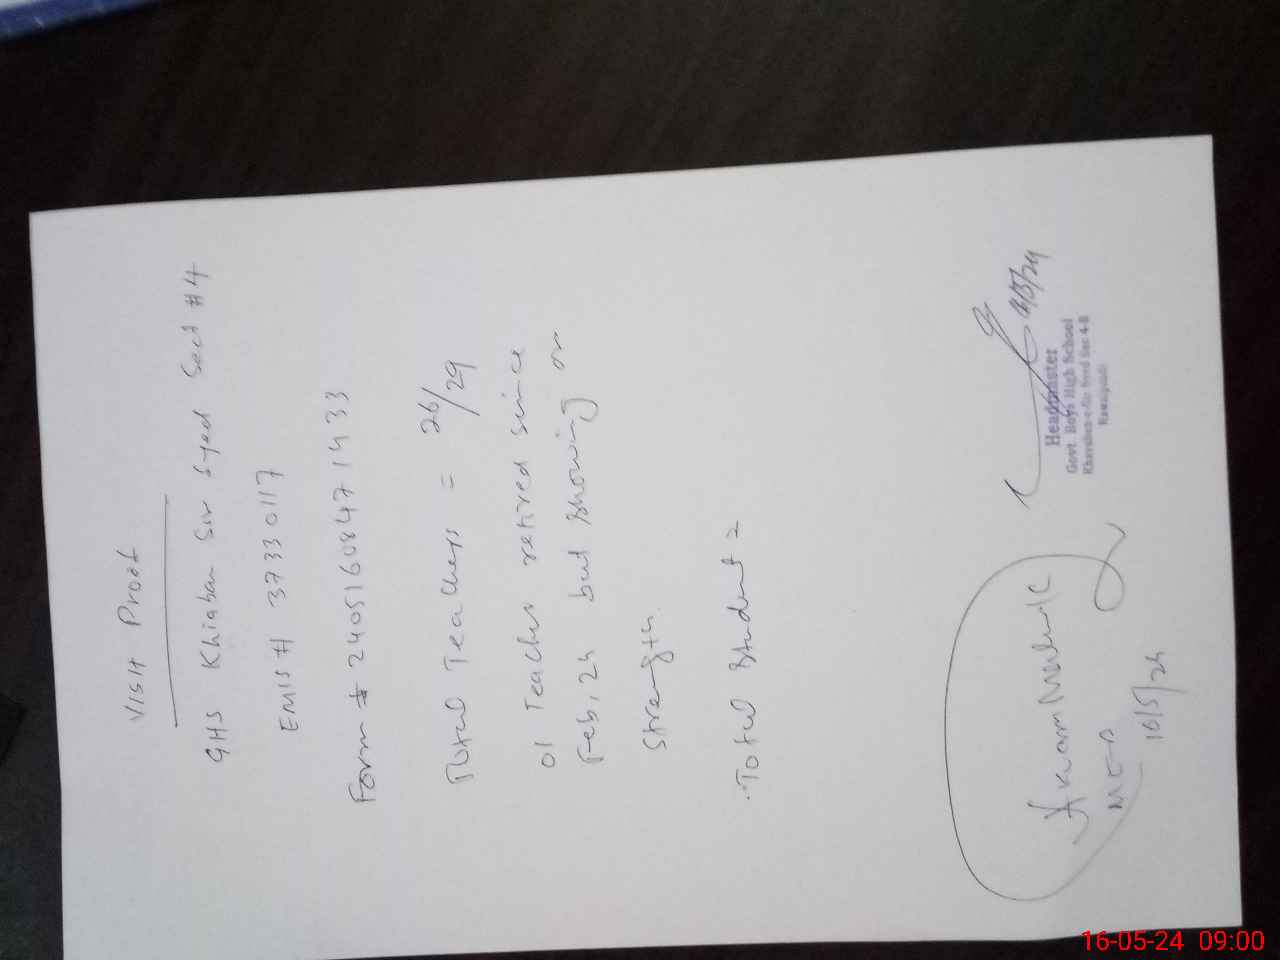 Visit Proof
GHS Khiaban Sir Syed Sect #4
EMIS # 37330117
Form # 24051608471433
Total Teachers = 26/29
01 Teacher retired since
Feb, 24 but showing on
strength
Total Student =
Akram Malik
MEA
16/5/24
Headmaster
Govt. Boys High School
Khayaban-e-Sir Syed Sec 4-B
Rawalpindi
16-05-24 09:00